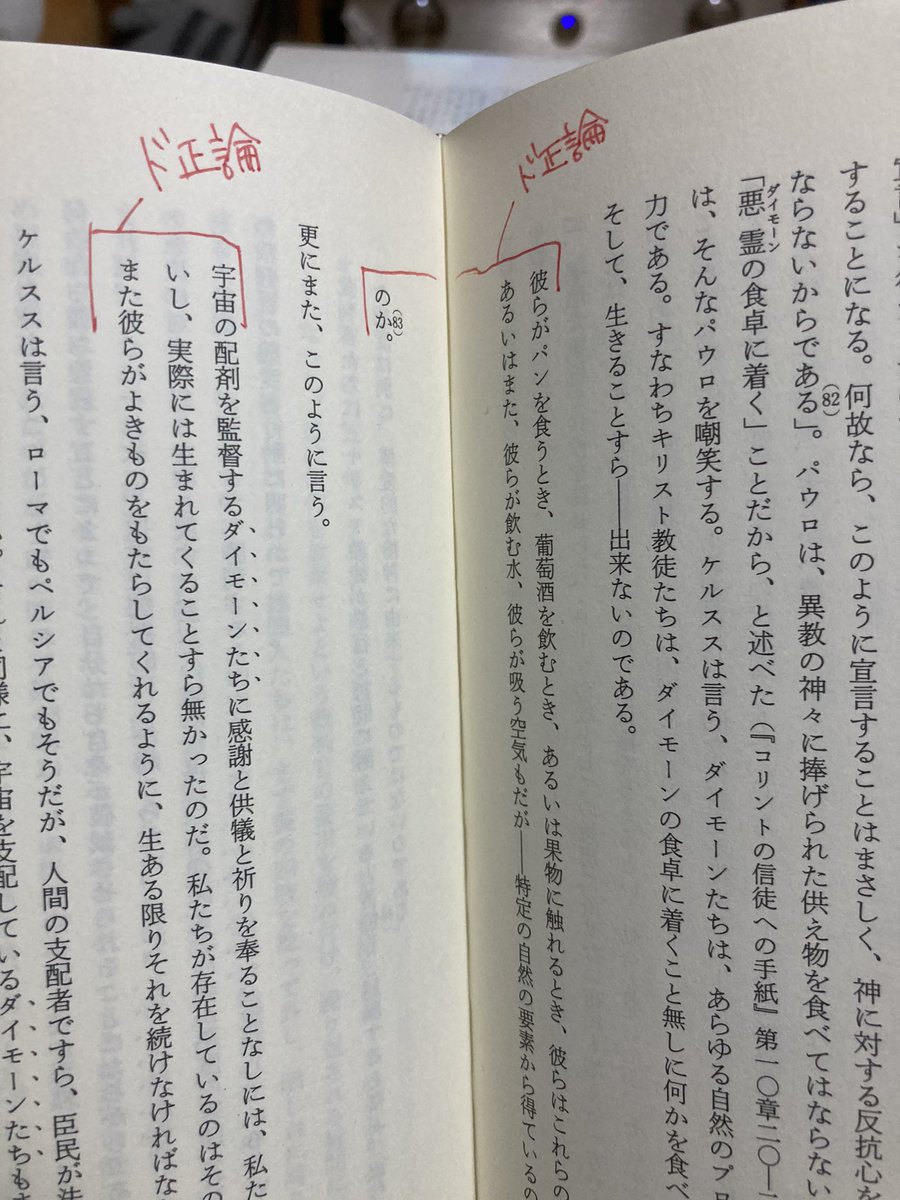 することになる。何故なら、このように宣言することはまさしく、神に対する反抗心を
ならないからである(82)」。パウロは、異教の神々に捧げられた供え物を食べてはならない
「悪霊の食卓に着く」ことだから、と述べた(『コリントの信徒への手紙』第一〇章二〇―
ダイモーン
は、そんなパウロを嘲笑する。ケルススは言う、ダイモーンたちは、あらゆる自然のプロ
力である。すなわちキリスト教徒たちは、ダイモーンの食卓に着くこと無しに何かを食べ
そして、生きることすら――出来ないのである。
ド正論
彼らがパンを食うとき、葡萄酒を飲むとき、あるいは果物に触れるとき、彼らはこれらの
あるいはまた、彼らが飲む水、彼らが吸う空気もだが――特定の自然の要素から得ているの
のか(83)。
更にまた、このように言う。
ド正論
宇宙の配剤を監督するダイモーンたちに感謝と供犠と祈りを奉ることなしには、私た
いし、実際には生まれてくることすら無かったのだ。私たちが存在しているのはその
また彼らがよきものをもたらしてくれるように、生ある限りそれを続けなければな
ケルススは言う、ローマでもペルシアでもそうだが、人間の支配者ですら、臣民が
同様に、宇宙を支配しているダイモーンたちも